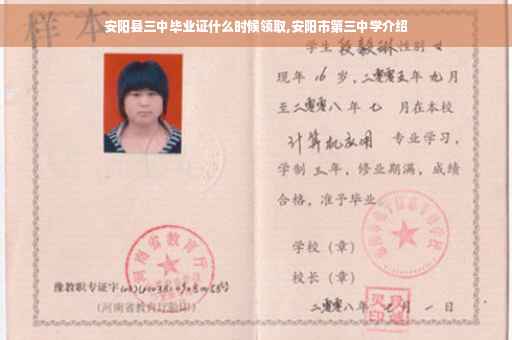 安阳县三中毕业证什么时候领取,安阳市第三中学介绍
样本
学生段毅琳性别女
现年16岁,二零零五年九月
至二零零八年七月在本校
计算机应用 专业学习,
学制三年,修业期满,成绩
合格,准予毕业
学校(章)
校长(章)
二零零八年七月一日
河南省教育厅
豫教职专证字
(河南省教育厅验印)